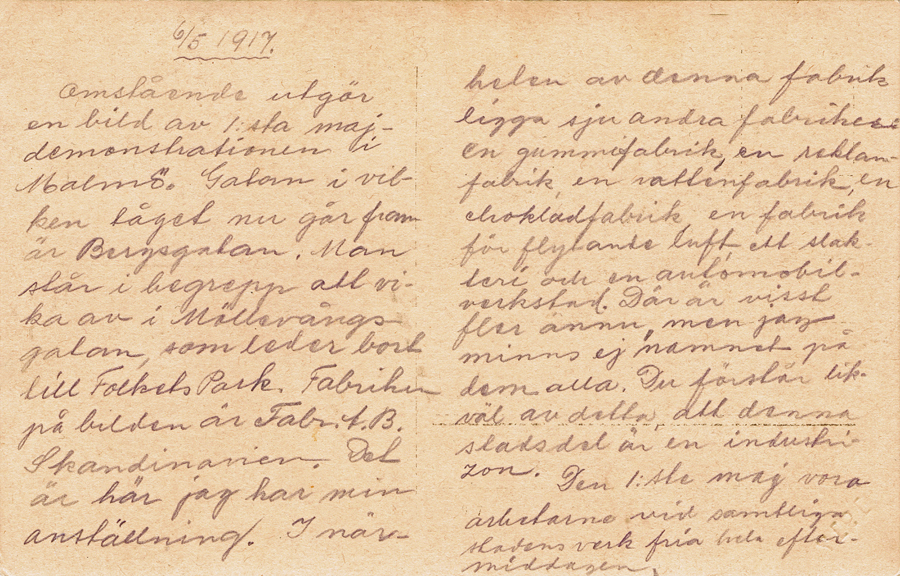 6/5 1917.
Omstående utgör
en bild av 1:sta maj-
demonstrationen i
Malmö. Gatan i vil-
ken tåget nu går fram
är Bergsgatan. Man
står i begrepp att vi-
ka av i Möllevångs-
gatan, som leder bort
till Folkets Park. Fabriken
på bilden är Fabr. A.B.
Skandinavien. Det
är här jag har min
anställning. I när-
heten av denna fabrik
ligga sju andra fabriker:
en gummifabrik, en reklam-
fabrik, en vattenfabrik, en
chokladfabrik, en fabrik
för flytande luft ett slak-
teri och en automobil-
verkstad. Där är visst
fler ännu, men jag
minns ej namnet på
dem alla. Du förstår lik-
väl av detta, att denna
stadsdel är en industri-
zon. Den 1:ste maj voro
arbetarne vid samtliga
stadens verk fria hela efter-
middagen.